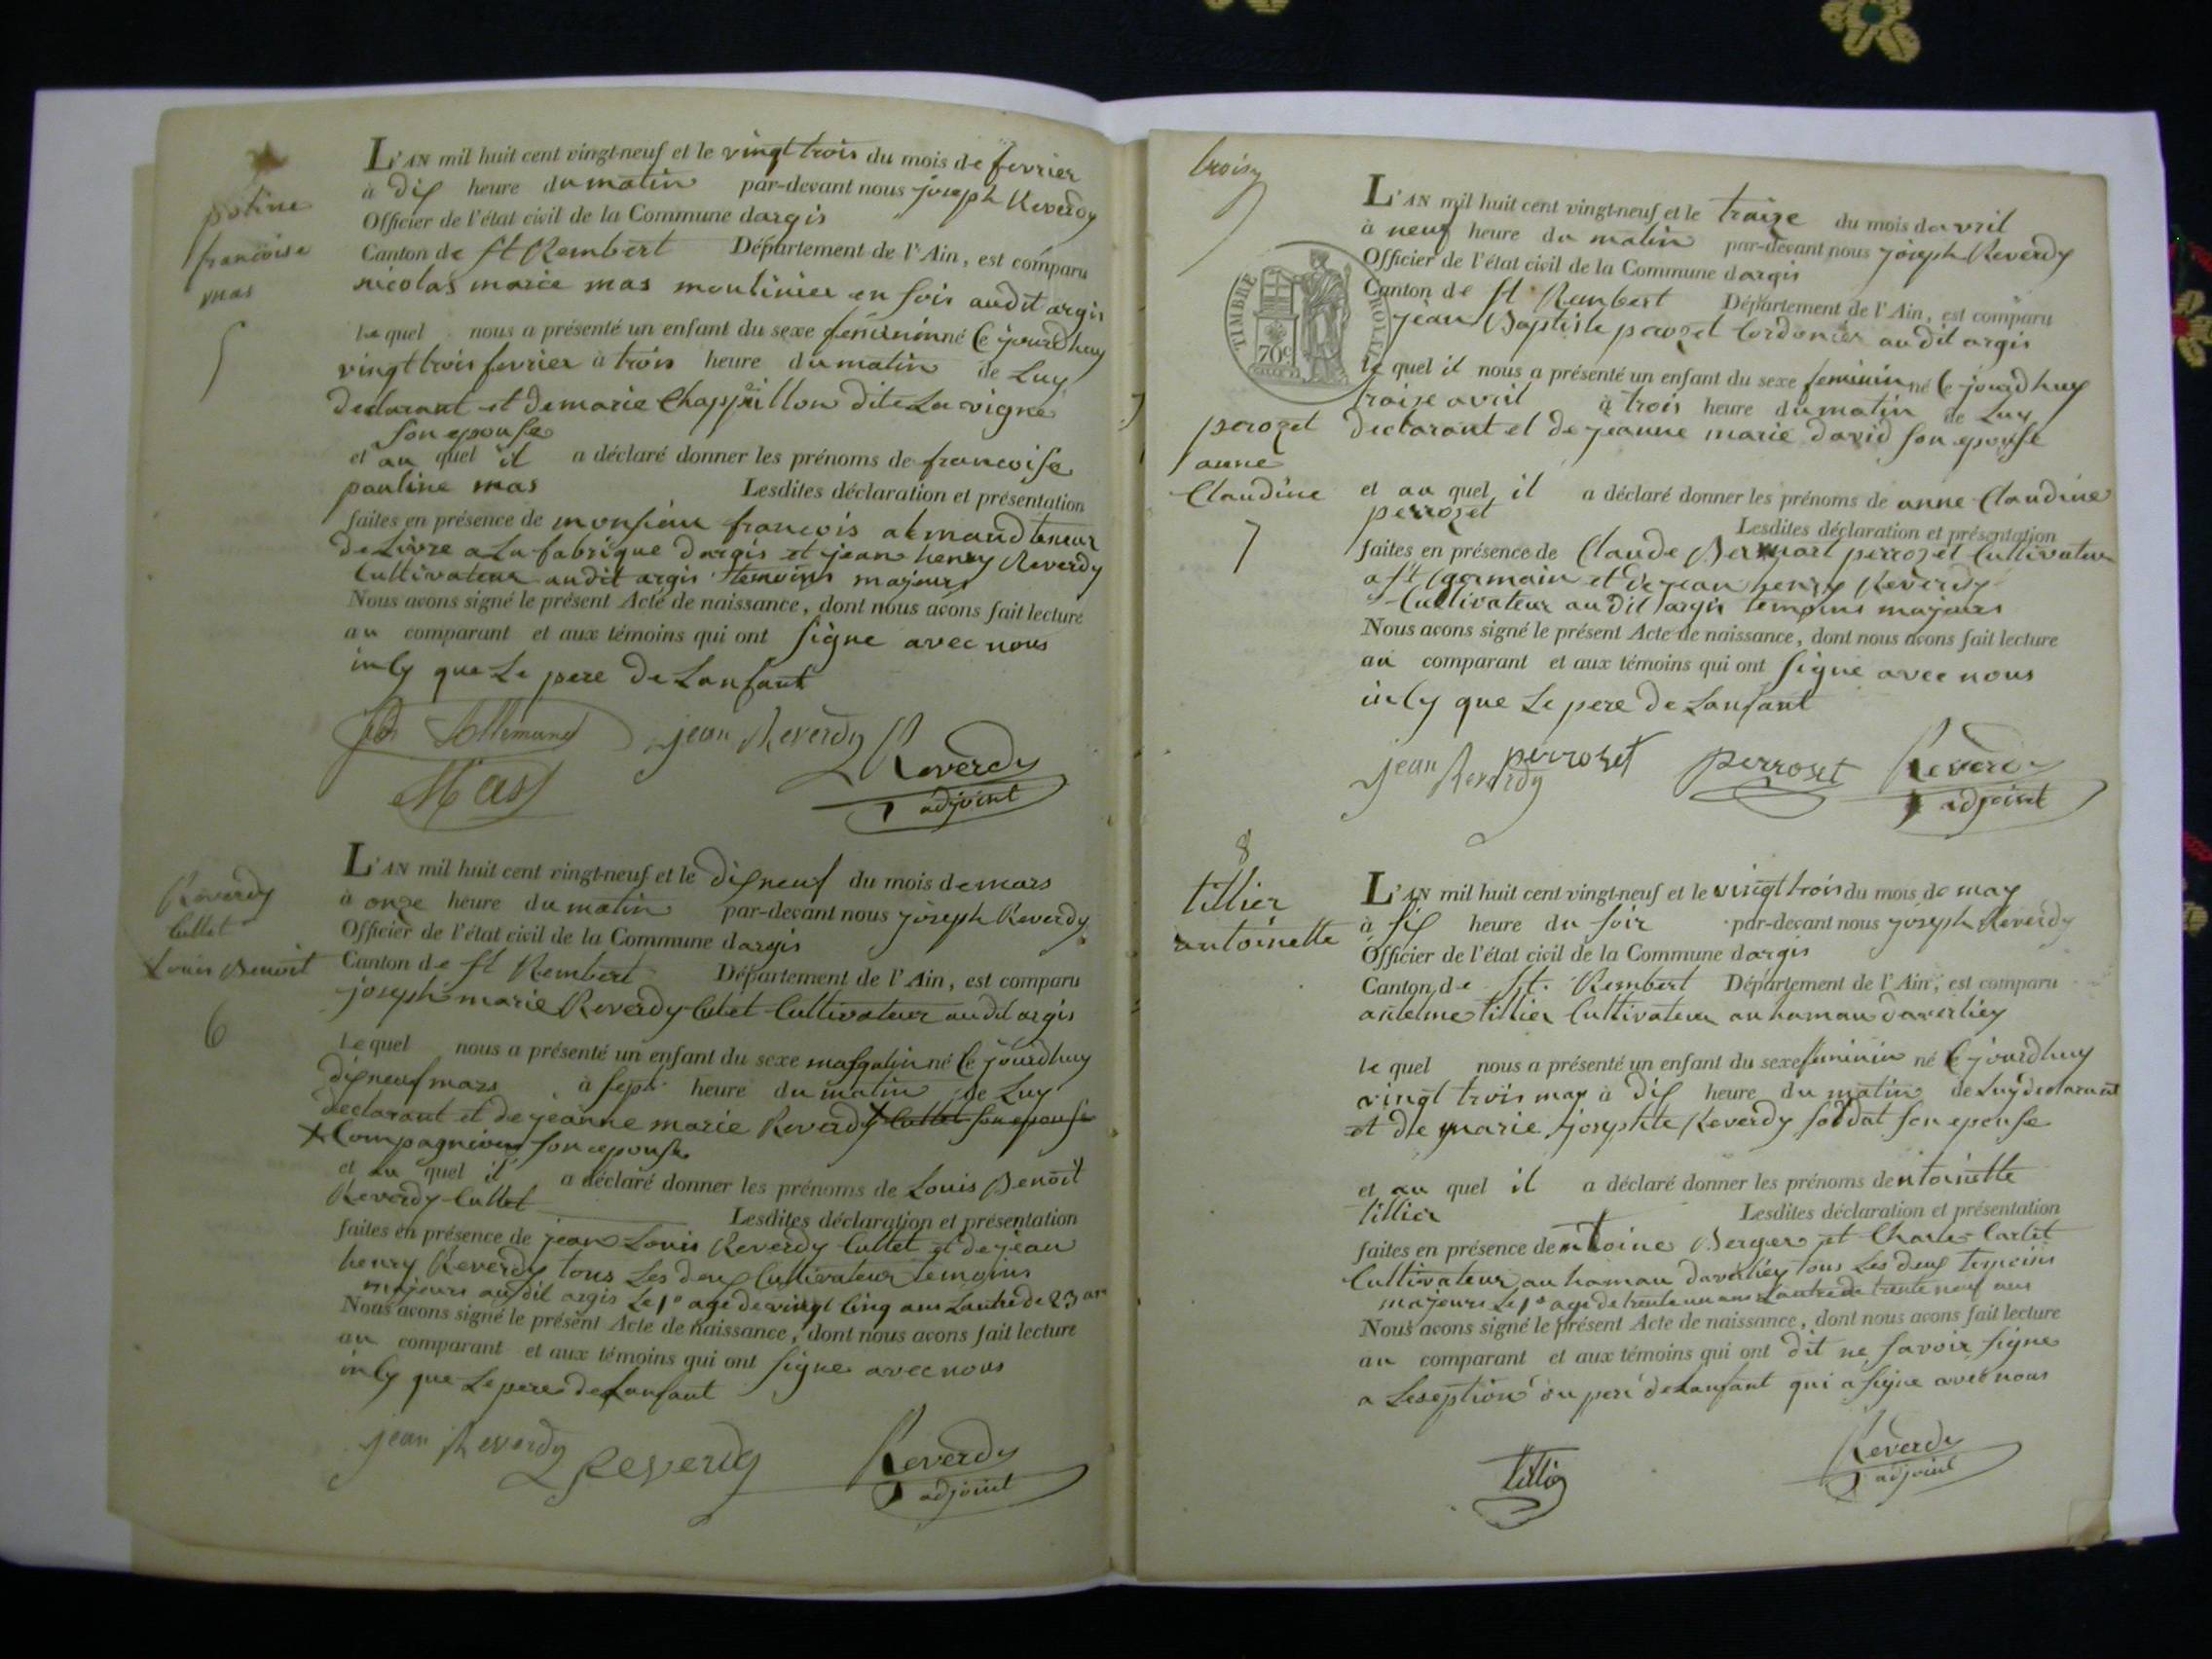 potine
françoise
mas
5
L'AN mil huit cent vingt-neuf et le vingt trois du mois de fevrier
à dix heure du matin par-devant nous joseph Reverdy
Officier de l'état civil de la Commune dargis
Canton de St Rembert Département de l'Ain, est comparu
nicolas marie mas moulinier en soie audit argis
le quel nous a présenté un enfant du sexe feminin né Ce jourdhuy
vingt trois fevrier à trois heure du matin de Luy
declarant et de marie Chappuillon dite La vigne
son epouse
et au quel il a déclaré donner les prénoms de francoise
pauline mas Lesdites déclaration et présentation
faites en présence de monsieur francois alemand teneur
de Livre a La fabrique dargis et jean henry Reverdy
Cultivateur audit argis temoins majeurs
Nous avons signé le présent Acte de naissance, dont nous avons fait lecture
au comparant et aux témoins qui ont signe avec nous
incy que Le pere de Lanfant
Allemand jean Reverdy Reverdy
Mas adjoint
Reverdy
Cullet
Louis Benoit
6
L'AN mil huit cent vingt-neuf et le dix neuf du mois de mars
à onze heure du matin par-devant nous joseph Reverdy
Officier de l'état civil de la Commune dargis
Canton de St Rembert Département de l'Ain, est comparu
joseph marie Reverdy Culet Cultivateur audit argis
le quel nous a présenté un enfant du sexe masqulin né Ce jourdhuy
dix neuf mars à sept heure du matin de Luy
declarant et de jeanne marie Reverdy x Cullet son epouse
x Compagnion son epouse
et au quel il a déclaré donner les prénoms de Louis Benoit
Reverdy Cullet Lesdites déclaration et présentation
faites en présence de jean Louis Reverdy Cullet et de jean
henry Reverdy tous Les deux Cultivateur temoins
majeurs audit argis Le 1º age de vingt Cinq ans Lautre de 23 an
Nous avons signé le présent Acte de naissance, dont nous avons fait lecture
au comparant et aux témoins qui ont signe avec nous
incy que Le pere de Lanfant
jean Reverdy Reverdy Reverdy
adjoint
troisy
TIMBRE ROYAL
70c
perozet
anne
Claudine
7
L'AN mil huit cent vingt-neuf et le traize du mois davril
à neuf heure du matin par-devant nous joseph Reverdy
Officier de l'état civil de la Commune dargis
Canton de St Rembert Département de l'Ain, est comparu
jean Baptiste perozet Cordonier audit argis
le quel il nous a présenté un enfant du sexe feminin né Ce jourdhuy
traize avril à trois heure du matin de Luy
declarant et de jeanne marie david son epouse
et au quel il a déclaré donner les prénoms de anne Claudine
perrozet Lesdites déclaration et présentation
faites en présence de Claude Bernard perrozet Cultivateur
a St germain et de jean henry Reverdy
Cultivateur audit argis temoins majeurs
Nous avons signé le présent Acte de naissance, dont nous avons fait lecture
au comparant et aux témoins qui ont signe avec nous
incy que Le pere de Lanfant
jean Reverdy perrozet perrozet Reverdy
adjoint
8
tillier
antoinette
L'AN mil huit cent vingt-neuf et le vingt trois du mois de may
à six heure du soir par-devant nous joseph Reverdy
Officier de l'état civil de la Commune dargis
Canton de St. Rembert Département de l'Ain, est comparu
antelme tillier Cultivateur au hamau daverliey
le quel nous a présenté un enfant du sexe feminin né Ce jourdhuy
vingt trois may à dix heure du matin de Luy declarant
et de marie josephte Reverdy soldat son epouse
et au quel il a déclaré donner les prénoms dentoinette
tillier Lesdites déclaration et présentation
faites en présence dentoine Berger et Charle Cartet
Cultivateur au hamau daverliey tous Les deux temoins
majeurs Le 1º age de trente un ans Lautre de trente neuf ans
Nous avons signé le présent Acte de naissance, dont nous avons fait lecture
au comparant et aux témoins qui ont dit ne savoir signe
a Leseption du pere de Lanfant qui a signe avec nous
tillier Reverdy
adjoint